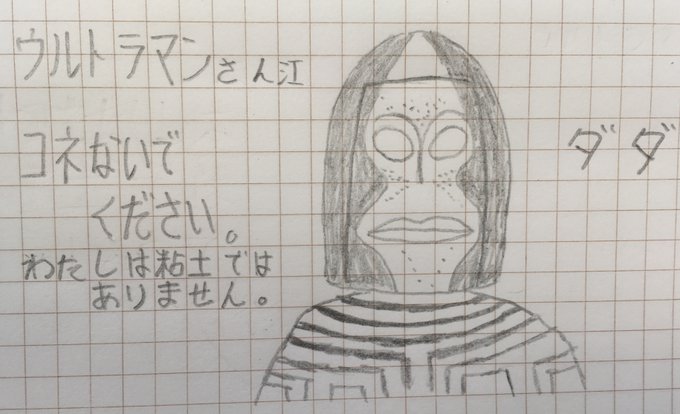 ウルトラマンさん江
コネないで
ください。
わたしは粘土では
ありません。
ダダ